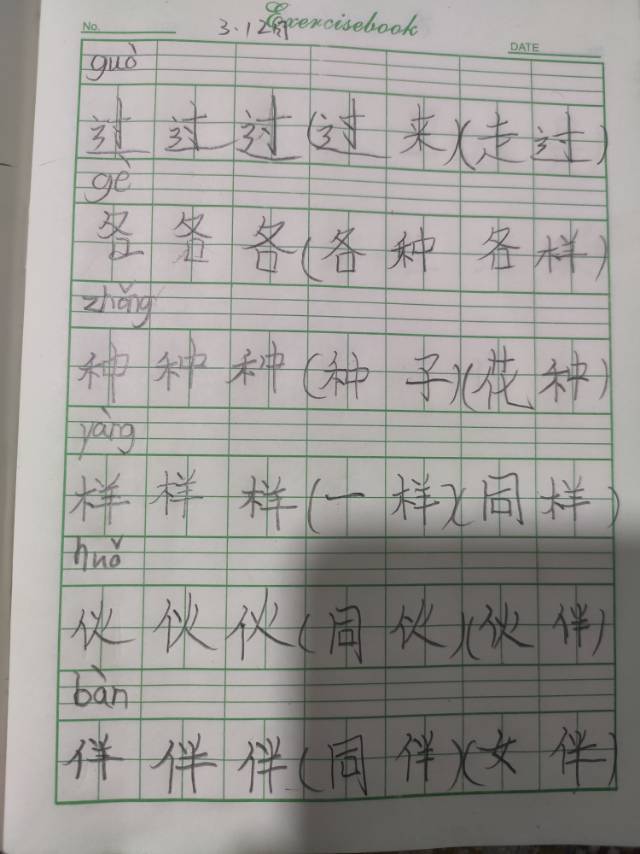 No. 3.12 Exercisebook
DATE
guò
过 过 过 (过 来)(走 过)
gè
各 各 各 (各 种 各 样)
zhǒng
种 种 种 (种 子)(花 种)
yàng
样 样 样 (一 样)(同 样)
huǒ
伙 伙 伙 (同 伙)(伙 伴)
bàn
伴 伴 伴 (同 伴)(女 伴)